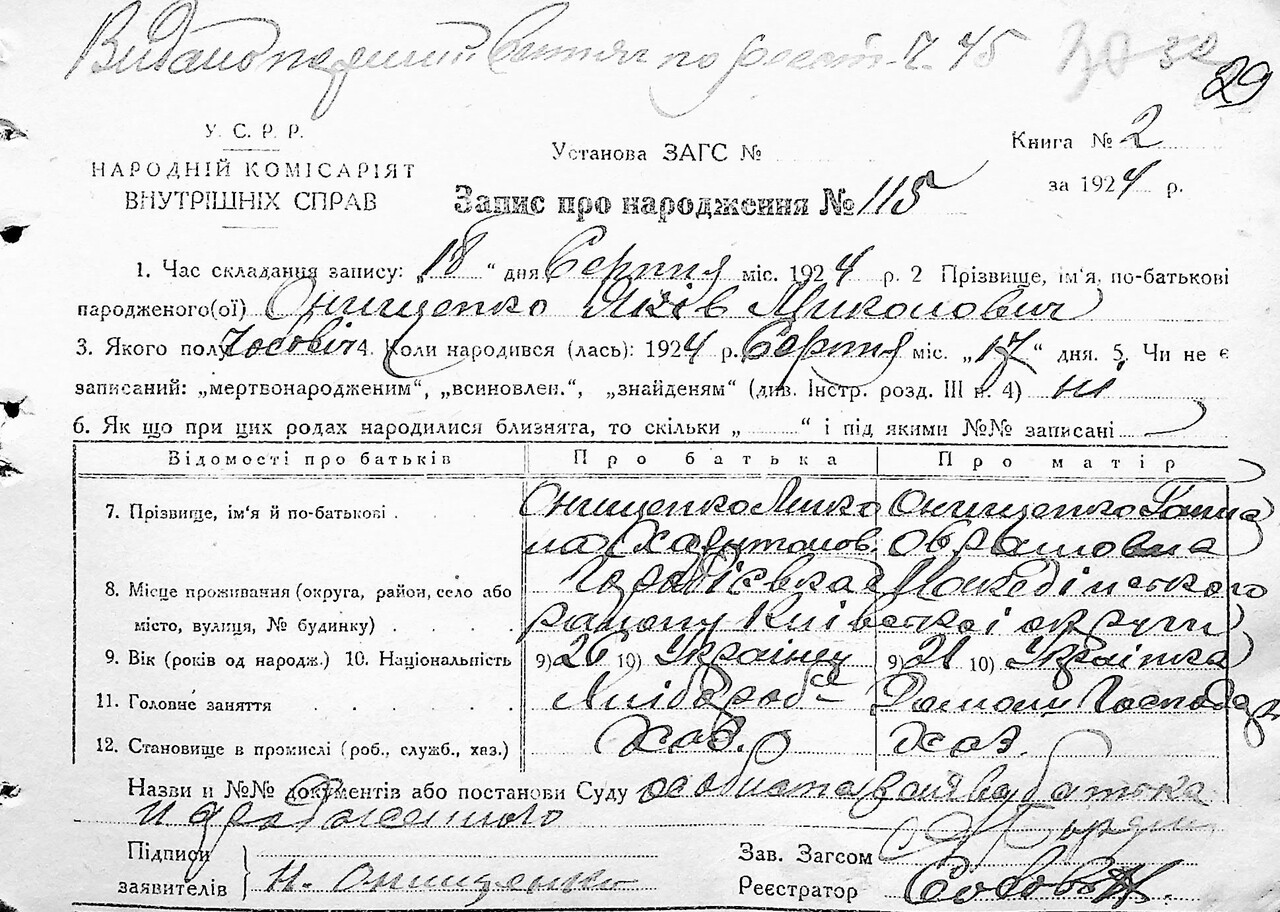 Видано перший витяг по реєст. Ч. 45
30 32
29
У. С. Р. Р.
НАРОДНІЙ КОМІСАРІЯТ
ВНУТРІШНІХ СПРАВ
Установа ЗАГС №
Книга № 2
за 1924 р.
Запис про народження № 115
1. Час складання запису: „18“ дня Серпня міс. 1924 р. 2 Прізвище, ім'я, по-батькові
народженого(ої) Онищенко Яків Миколович
3. Якого полу Чоловіч 4. Коли народився (лась): 1924 р. Серпня міс. „17“ дня. 5. Чи не є
записаний: „мертвонародженим“, „всиновлен.“, „знайденям“ (див. Інстр. розд. III п. 4) ні
6. Як що при цих родах народилися близнята, то скільки „ “ і під якими №№ записані
Відомості про батьків Про батька Про матір
7. Прізвище, ім'я й по-батькові Онищенко Мико Онищенко Ганна
ла Харитонов. Овралмовна
8. Місце проживання (округа, район, село або Македінського
місто, вулиця, № будинку) району Київської округи
9. Вік (років од народж.) 10. Національність 9) 26 10) Українец 9) 21 10) Українка
11. Головне заняття Хлібороб Домашн Господар
12. Становище в промислі (роб., служб., хаз.) Хаз. Хаз.
Назви и №№ документів або постанови Суду особиста заява батька
Підписи
заявителів Н. Онищенко
Зав. Загсом
Реєстратор